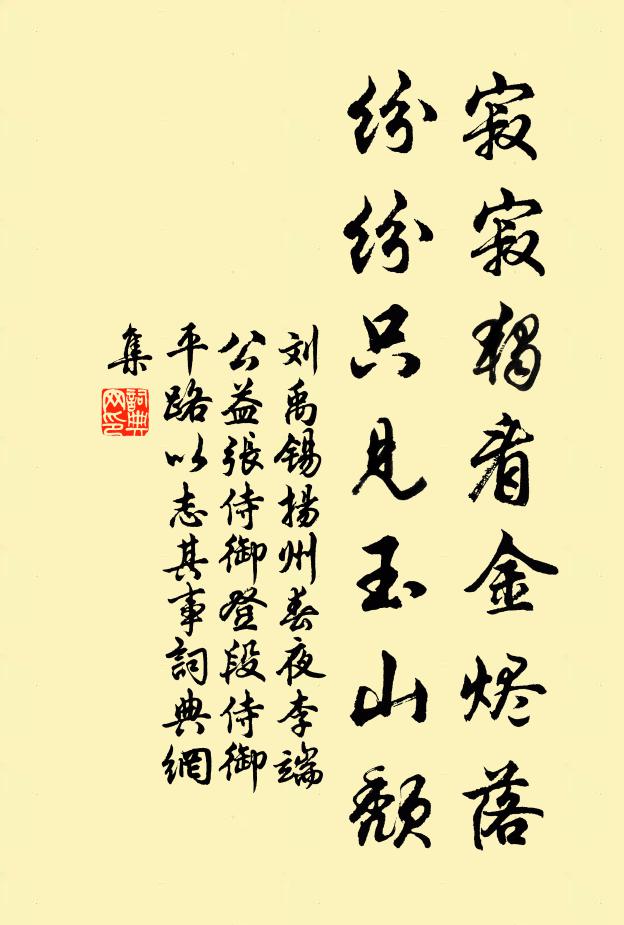 寂寂獨看金烬落
纷纷只見玉山颓
刘禹锡揚州春夜李端
公益張侍御登段侍御
平路以志其事詞典網
集
詞典
网印